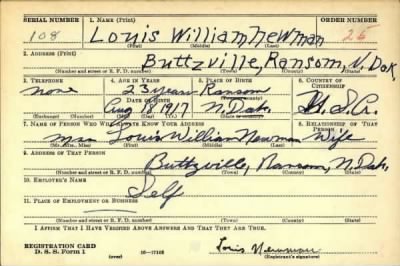 SERIAL NUMBER 1. NAME (Print) ORDER NUMBER
108 Louis William Newman 25
(First) (Middle) (Last)
2. ADDRESS (Print)
Buttzville, Ransom, N. Dak.
(Number and street or R. F. D. number) (Town) (County) (State)
3. TELEPHONE 4. AGE IN YEARS 5. PLACE OF BIRTH 6. COUNTRY OF CITIZENSHIP
none 23 years Ransom
DATE OF BIRTH (Town or county)
Aug 18 1917 N. Dak. U.S.A.
(Exchange) (Number) (Mo.) (Day) (Yr.) (State or country)
7. NAME OF PERSON WHO WILL ALWAYS KNOW YOUR ADDRESS 8. RELATIONSHIP OF THAT PERSON
Mrs Louis William Newman Wife
(Mr., Mrs., Miss) (First) (Middle) (Last)
9. ADDRESS OF THAT PERSON
Buttzville, Ransom, N. Dak.
(Number and street or R. F. D. number) (Town) (County) (State)
10. EMPLOYER'S NAME
Self
11. PLACE OF EMPLOYMENT OR BUSINESS
(Number and street or R. F. D. number) (Town) (County) (State)
I AFFIRM THAT I HAVE VERIFIED ABOVE ANSWERS AND THAT THEY ARE TRUE.
REGISTRATION CARD
D. S. S. Form 1 (over) Louis Newman
(Registrant's signature)